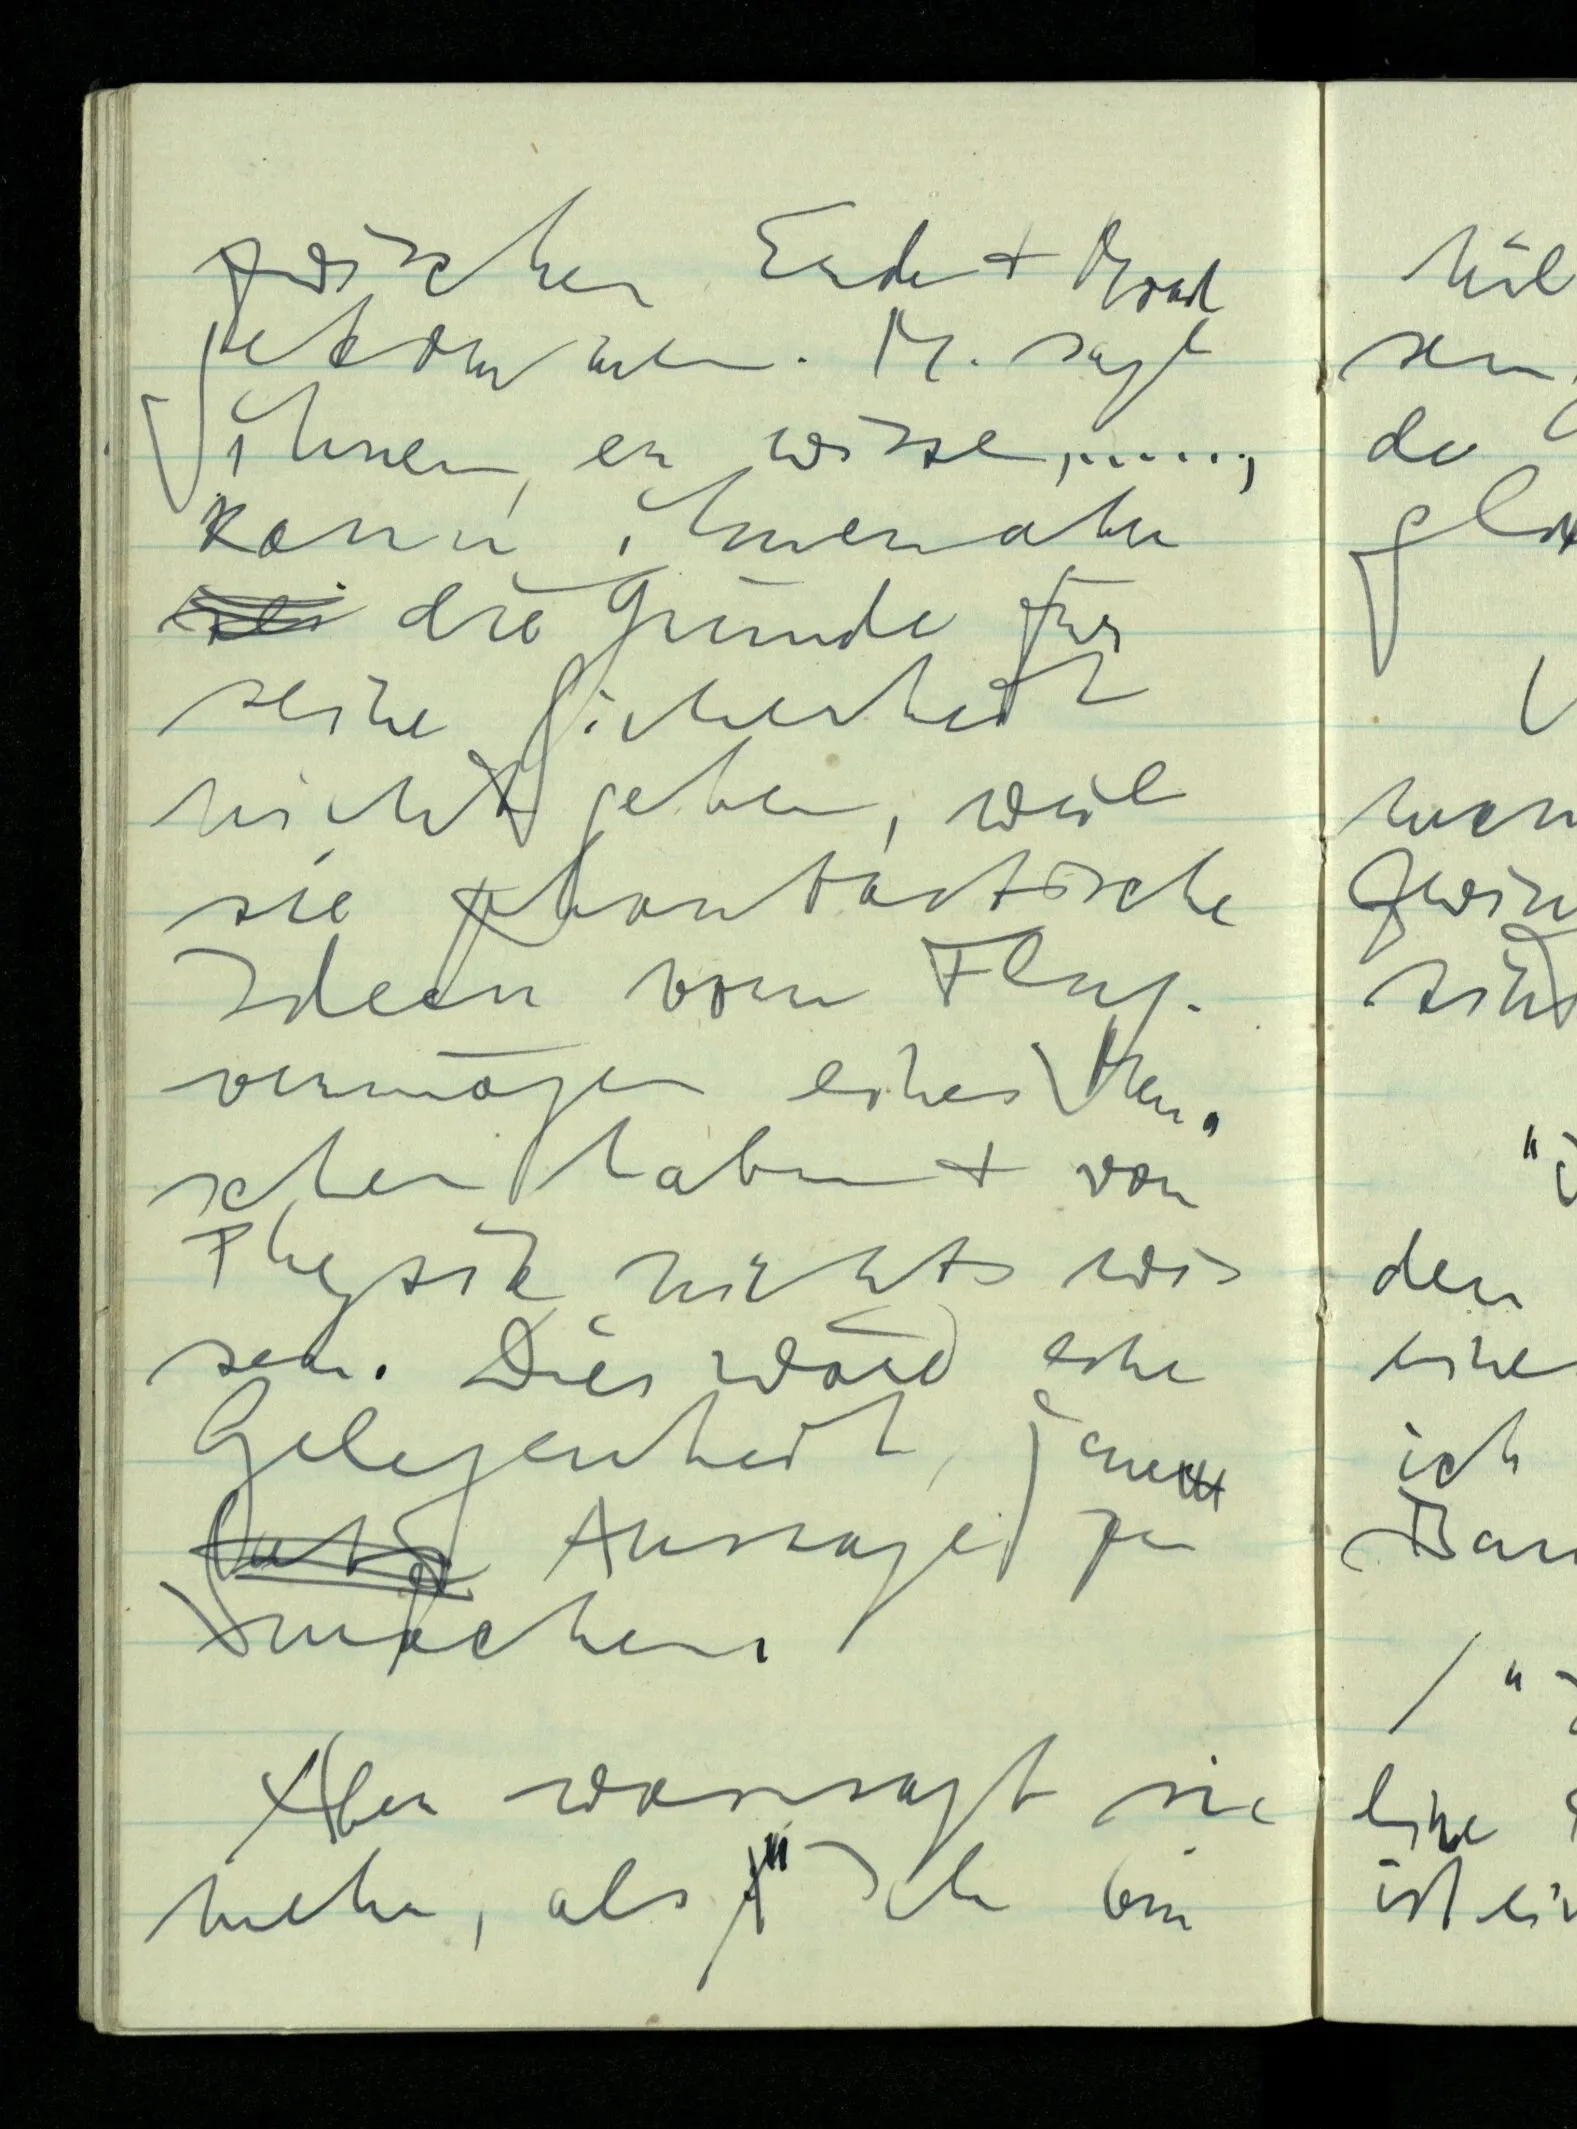 zwischen Erde + Mond
gekommen. M. sagt
ihnen, er wisse, .....,
kann ihnen aber
die Gründe für
seine Sicherheit
nicht geben, weil
sie phantastische
Ideen vom Flug-
vermögen eines Men-
schen haben + von
Physik nichts wis
sen. Dies wäre eine
Gelegenheit, jene
Aussage zu
machen.
Aber was sagt sie
mehr, als "Ich bin
hül
sen,
de
V
"
den
eine
ich
/ "
eine
ist ei